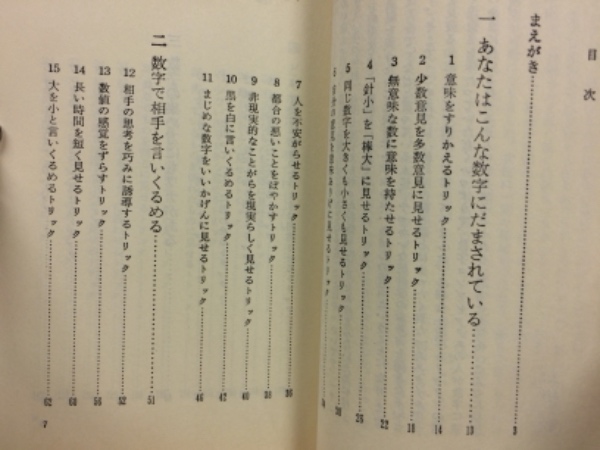 目次
まえがき 3
一 あなたはこんな数字にだまされている 13
1 意味をすりかえるトリック 14
2 少数意見を多数意見に見せるトリック 18
3 無意味な数に意味を持たせるトリック 22
4 「針小」を「棒大」に見せるトリック 25
5 同じ数字を大きくも小さくも見せるトリック
7 人を不安がらせるトリック
8 都合の悪いことをぼやかすトリック
9 非現実的なことがらを現実らしく見せるトリック 40
10 黒を白に言いくるめるトリック
11 まじめな数字をいいかげんに見せるトリック 46
二 数字で相手を言いくるめる 51
12 相手の思考を巧みに誘導するトリック 52
13 数値の感覚をずらすトリック
14 長い時間を短く見せるトリック
15 大を小と言いくるめるトリック 62
7